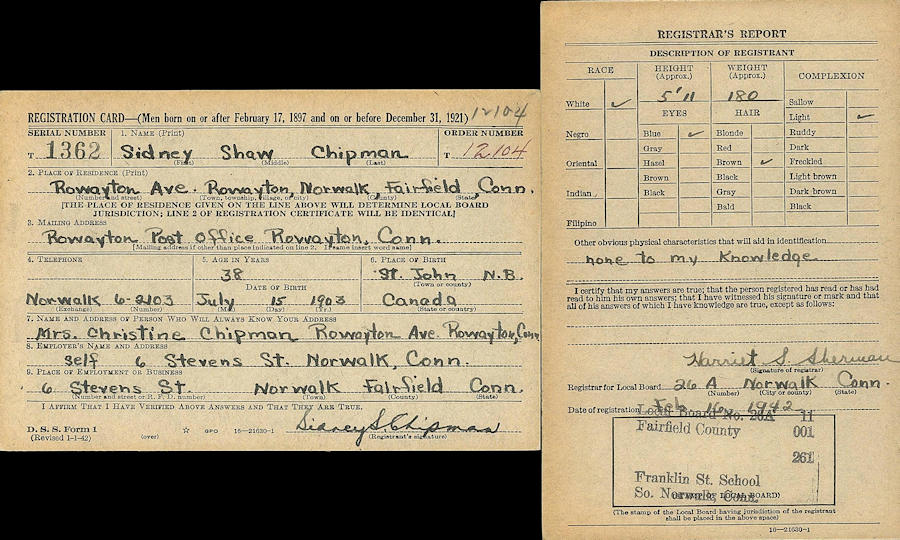 12104
REGISTRATION CARD—(Men born on or after February 17, 1897 and on or before December 31, 1921)
SERIAL NUMBER 1. NAME (Print) ORDER NUMBER
T 1362 Sidney Shaw Chipman T 12104
(First) (Middle) (Last)
2. PLACE OF RESIDENCE (Print)
Rowayton Ave. Rowayton, Norwalk, Fairfield, Conn.
(Number and street) (Town, township, village, or city) (County) (State)
[THE PLACE OF RESIDENCE GIVEN ON THE LINE ABOVE WILL DETERMINE LOCAL BOARD
JURISDICTION; LINE 2 OF REGISTRATION CERTIFICATE WILL BE IDENTICAL]
3. MAILING ADDRESS
Rowayton Post Office Rowayton, Conn.
[Mailing address if other than place indicated on line 2. If same insert word same]
4. TELEPHONE 5. AGE IN YEARS 6. PLACE OF BIRTH
38 St. John N.B.
DATE OF BIRTH (Town or county)
Norwalk 6-2103 July 15 1903 Canada
(Exchange) (Number) (Mo.) (Day) (Yr.) (State or country)
7. NAME AND ADDRESS OF PERSON WHO WILL ALWAYS KNOW YOUR ADDRESS
Mrs. Christine Chipman Rowayton Ave. Rowayton, Conn
8. EMPLOYER'S NAME AND ADDRESS
self 6 Stevens St. Norwalk, Conn.
9. PLACE OF EMPLOYMENT OR BUSINESS
6 Stevens St. Norwalk Fairfield Conn.
(Number and street or R. F. D. number) (Town) (County) (State)
I AFFIRM THAT I HAVE VERIFIED ABOVE ANSWERS AND THAT THEY ARE TRUE.
D. S. S. Form 1
(Revised 1-1-42) (over) GPO 16—21630-1 Sidney S. Chipman
(Registrant's signature)
REGISTRAR'S REPORT
DESCRIPTION OF REGISTRANT
RACE HEIGHT (Approx.) WEIGHT (Approx.) COMPLEXION
White ✓ 5'11 180 Sallow
EYES HAIR Light ✓
Negro Blue ✓ Blonde Ruddy
Gray Red Dark
Oriental Hazel Brown ✓ Freckled
Brown Black Light brown
Indian Black Gray Dark brown
Bald Black
Filipino
Other obvious physical characteristics that will aid in identification
none to my Knowledge
I certify that my answers are true; that the person registered has read or has had
read to him his own answers; that I have witnessed his signature or mark and that
all of his answers of which I have knowledge are true, except as follows:
Harriet S. Sherman
(Signature of registrar)
Registrar for Local Board 26 A Norwalk Conn.
(Number) (City or county) (State)
Date of registration Feb. 16, 1942
Local Board No. 26A 11
Fairfield County 001
261
Franklin St. School
So. Norwalk, Conn.
(STAMP OF LOCAL BOARD)
(The stamp of the Local Board having jurisdiction of the registrant
shall be placed in the above space)
16—21630-1